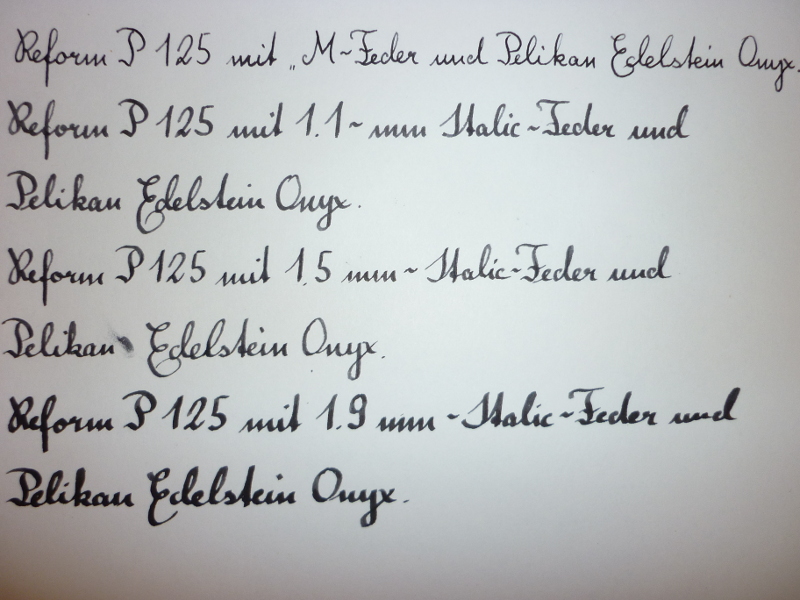 Reform P 125 mit „M-Feder und Pelikan Edelstein Onyx.
Reform P 125 mit 1.1-mm Italic-Feder und
Pelikan Edelstein Onyx.
Reform P 125 mit 1.5 mm-Italic-Feder und
Pelikan Edelstein Onyx.
Reform P 125 mit 1.9 mm-Italic-Feder und
Pelikan Edelstein Onyx.